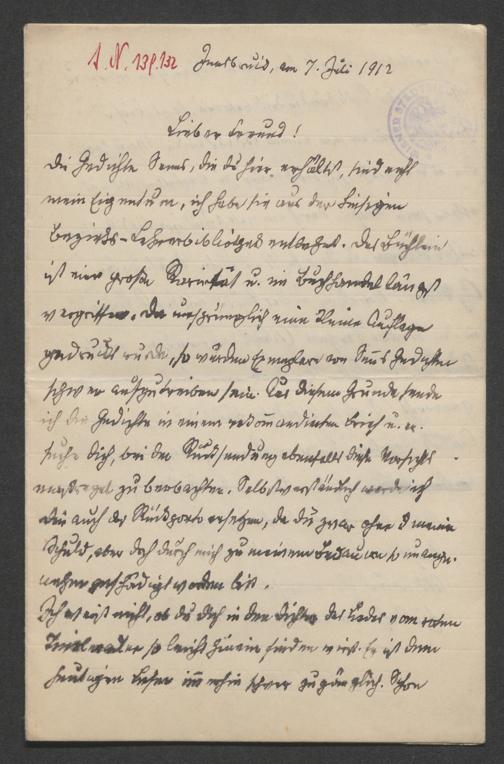 J. N. 139.132
Innsbruck, am 7. Juli 1912
WIENER STADT
Lieber Freund!
Die Gedichte Senns, die du hier erhältst, sind nicht
mein Eigentum, ich habe sie aus der hiesigen
Bezirks-Lehrerbibliothek entlehnt. Das Büchlein
ist eine große Rarität u. im Buchhandel längst
vergriffen. Da ursprünglich eine kleine Auflage
gedruckt wurde, so würden Exemplare von Senns Gedichten
schwer aufzutreiben sein. Aus diesem Grunde sende
ich die Gedichte in einem rekommandierten Brief u. er-
suche dich, bei der Rücksendung ebenfalls diese Vorsichts-
maßregel zu beobachten. Selbstverständlich werde ich
dir auch das Rückporto ersetzen, da du zwar ohne meine
Schuld, aber doch durch mich zu meinem Bedauern so unange-
nehm geschädigt worden bist.
Ich weiß nicht, ob du dich in den Dichter des Liedes vom roten
Tiroler Adler so leicht hineinfinden wirst. Er ist dem
heutigen Leser immerhin schwer zugänglich. Schon